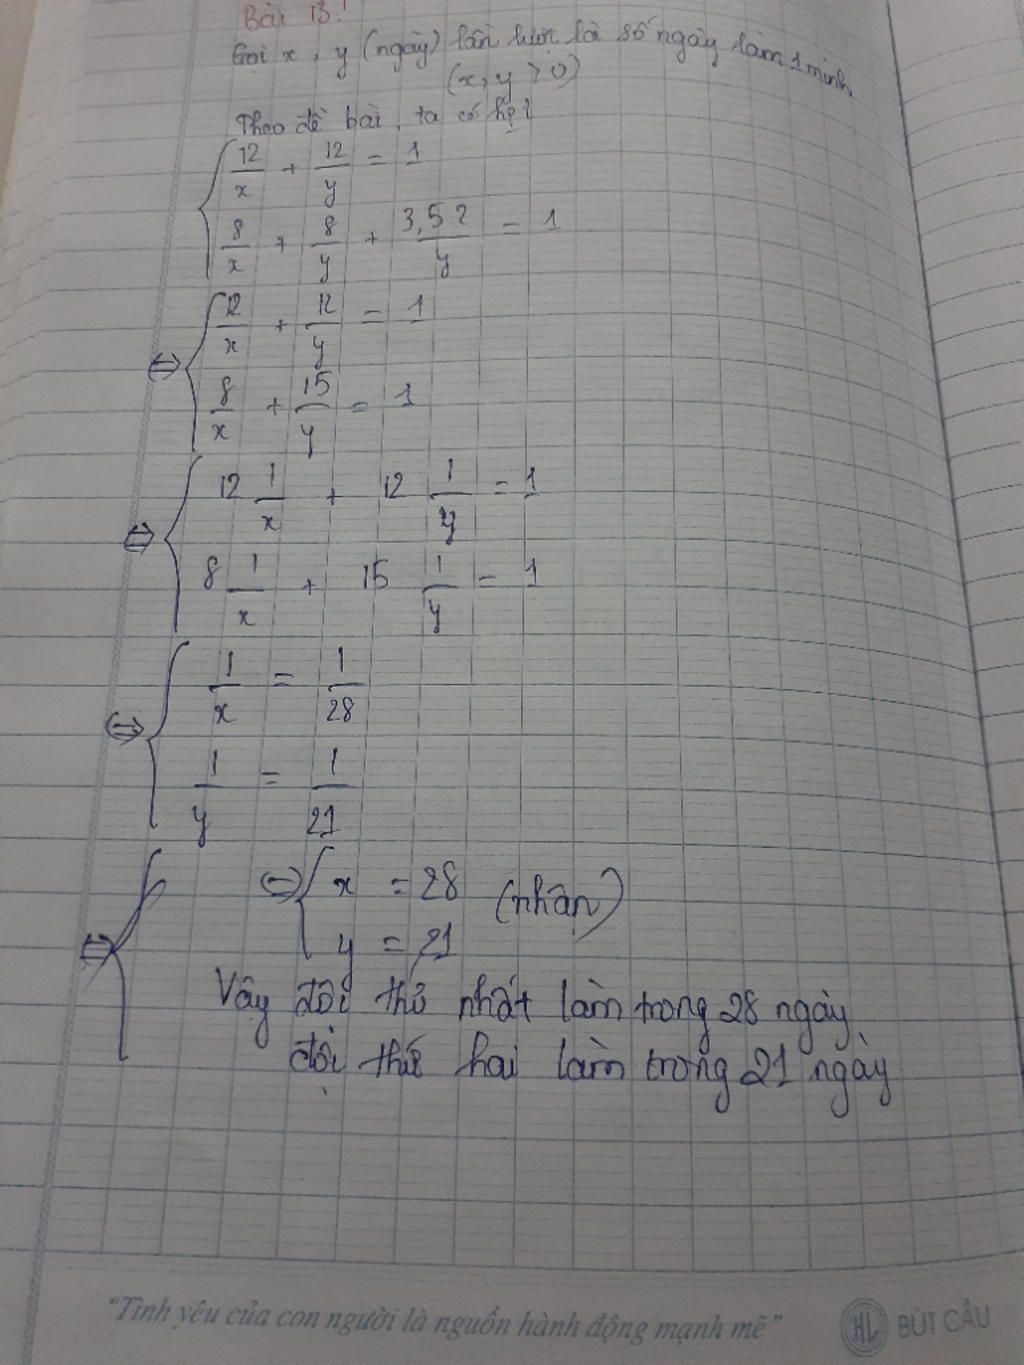 Bài 13:
Gọi x, y (ngày) lần lượt là số ngày làm 1 mình
(x, y > 0)
Theo đề bài, ta có hệ:
{ 12/x + 12/y = 1
8/x + 8/y + 3,5 2/y = 1
⇔ { 12/x + 12/y = 1
8/x + 15/y = 1
⇔ { 12 1/x + 12 1/y = 1
8 1/x + 15 1/y = 1
⇔ { 1/x = 1/28
1/y = 1/21
⇔ { x = 28 (nhận)
y = 21
Vậy đội thứ nhất làm trong 28 ngày
đội thứ hai làm trong 21 ngày
"Tình yêu của con người là nguồn hành động mạnh mẽ"
HL BÚT CẦU